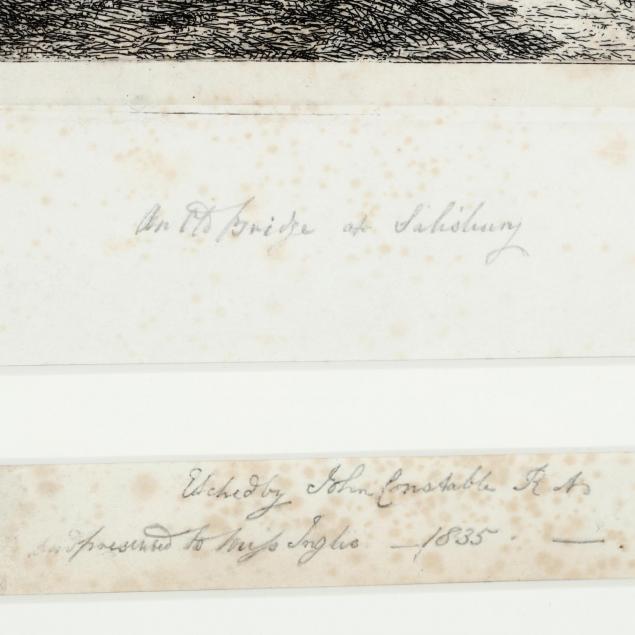 An Old Bridge at Salisbury
Etched by John Constable R A
and presented to Miss Inglis — 1835. —